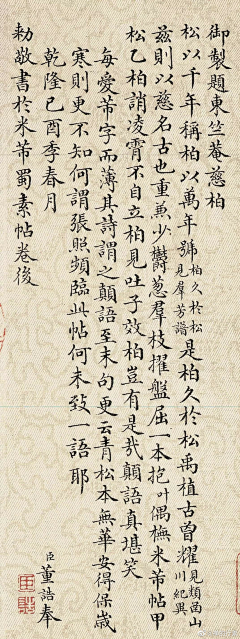 御製題東竺菴慈柏
松以千年稱柏以萬年號柏久於松見羣芳譜是柏久於松禹植古曾耀見類函山川紀異
兹則以慈名古也重蕪少鬱葱羣枝擢盤屈一本抱叶偶橅米芾帖甲
松乙柏誚凌霄不自立柏見吐子效柏豈有是㢤顛語真堪笑
每愛芾字而薄其詩謂之顛語至末句更云青松本無華安得保歲
寒則更不知何謂張照頻臨此帖何未致一語耶
乾隆己酉季春月
勅敬書於米芾蜀素帖卷後
臣董誥奉